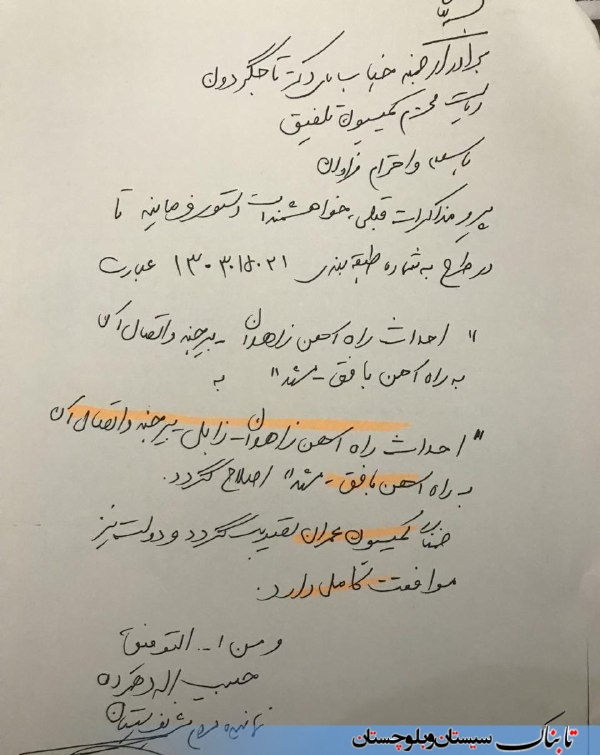 برادر ارجمند جناب آقای دکتر تاجگردون
ریاست محترم کمیسیون تلفیق
با سلام و احترام فراوان
پیرو مذاکرات قبلی، خواهشمند است دستور فرمایید تا
در طرح به شماره طبقه بندی ۱۳۰۳۰۱۵۰۲۱ عبارت
" احداث راه آهن زاهدان - بیرجند و اتصال آن
به راه آهن بافق - مشهد" به
" احداث راه آهن زاهدان - زابل - بیرجند و اتصال آن
به راه آهن بافق - مشهد" اصلاح گردد.
ضمناً کمیسیون عمران تقدیر گردد و دولت نیز
موافقت کامل دارد.
و من ا... التوفیق
حبیب اله دهمرده
نماینده مردم شریف سیستان
تابناک سیستان و بلوچستان